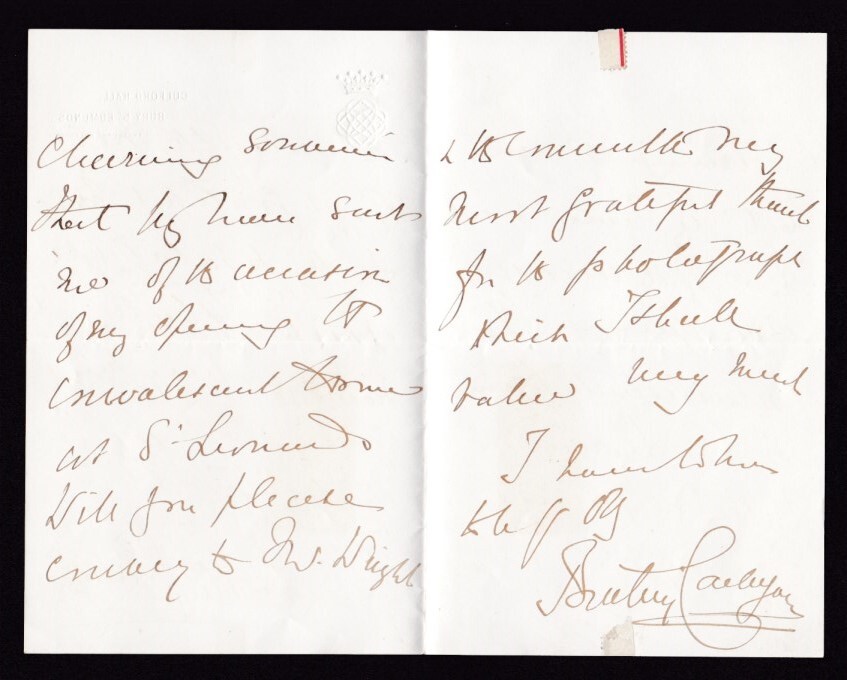 CULFORD HALL
BURY ST EDMUNDS
Charming Souvenir
that they have sent
me of the occasion
of my opening the
Convalescent Home
at St Leonards
Will you please
convey to Mr. Wright
& the Committee my
most grateful thanks
for the photograph
which I shall
value very much
I have to be
Cadogan